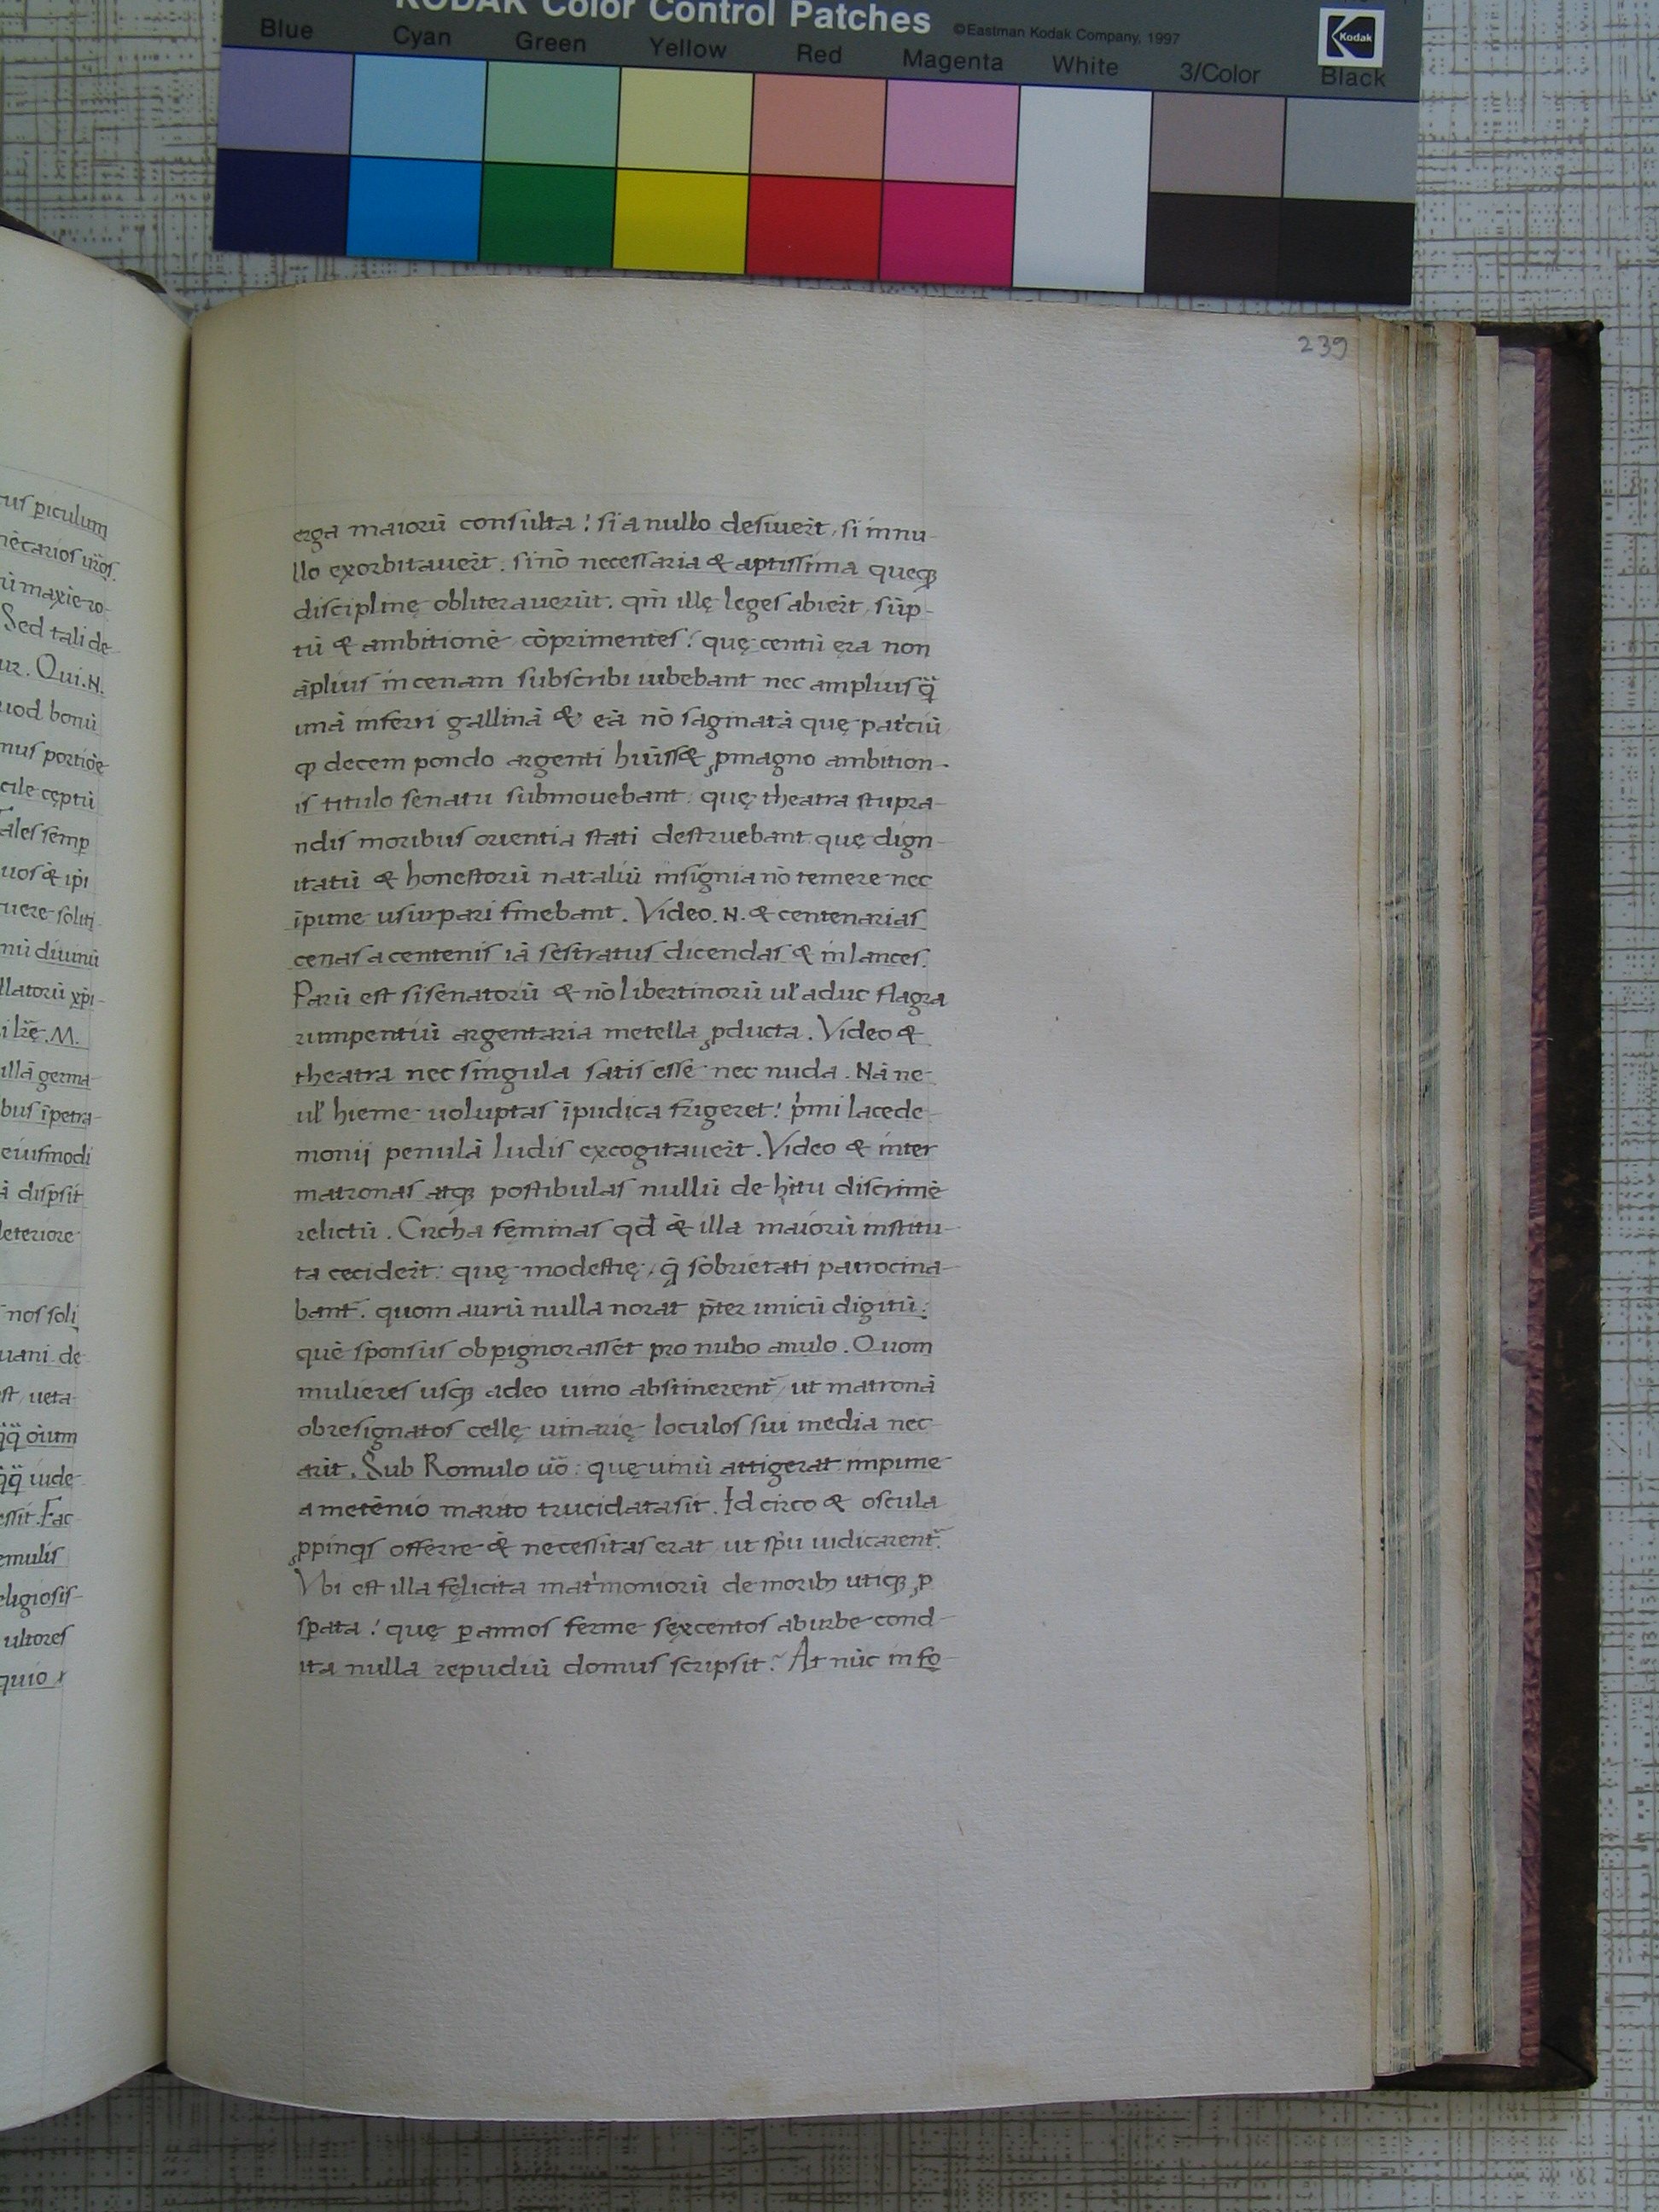 KODAK Color Control Patches
©Eastman Kodak Company, 1997
Kodak
Blue Cyan Green Yellow Red Magenta White 3/Color Black
239
erga maiorū consulta! si a nullo desiuert̄, si in nu-
llo exorbitauert̄. si nō necessaria & aptissima quęqꝫ
discipline obliterauerūt. qm̄ illę leges abiert̄, sūp-
tū & ambitionē cōprimentes! quę centū ęra non
āplius in cenam subscribi iubebant nec amplius q̄
unā inferri gallinā & eā nō saginatā quę pat'ciū
ꝙ decem pondo argenti hūiss& ꝓ magno ambition-
is titulo senatu submouebant: quę theatra stupra-
ndis moribus orientia stati destruebant quę dign-
itatū & honestorū nataliū insignia nō temere nec
īpune usurpari sinebant. Video. N. & centenarias
cenas a centenis iā sestratus dicendas & in lances.
Parū est si senatorū & nō libertinorū ul' aduc flagra
rumpentiū argentaria metella ꝓducta. Video &
theatra nec singula satis esse nec nuda. Nā ne
ul' hieme uoluptas īpudica frigeret! p'mi lacede-
monij penulā ludis excogitauert̄. Video & inter
matronas atqꝫ postibulas nullū de hītu discrimē
relictū. Circha feminas qd̄ & illa maiorū institu-
ta cecidert̄: quę modestię, q̄ sobrietati patrocina-
bant̄. quom aurū nulla norat p̄ter unicū digitū:
quē sponsus obpignorasset pro nubo anulo. Quom
mulieres usqꝫ adeo uino abstinerent̄, ut matronā
obresignatos cellę uinarię loculos sui inedia nec-
arīt. Sub Romulo ūō: quę uinū attigerat impune
a metēnio marito trucidata sit. Id circo & oscula
ꝓpinqs offerre & necessitas erat ut sp̄u iudicarent̄.
Vbi est illa fęlicita mat'moniorū de moribꝫ utiqꝫ ꝓ
sꝑata! quę ꝑ annos ferme sexcentos ab urbe cond-
ita nulla repudiū domus scripsit. At nūc in fę-
tus ꝑiculum
nēcarios uīros.
ū maxīe ro-
Sed tali de
ur. Qui. N.
uod bonū
mus portiōe
cile cęptū
Tales semꝑ
uos & ip̄i
tuere soliti
nū diuinū
llatorū xp̄i-
i lr̄ę. M.
illā germa-
bus īpetra-
eiusmodi
ā dispsit
deteriore
nos soli
uani de
est, ueta-
q̄q̄ oīum
q̄q̄ iude-
essit. Fac
emulis
eligiosis-
ultores
quio